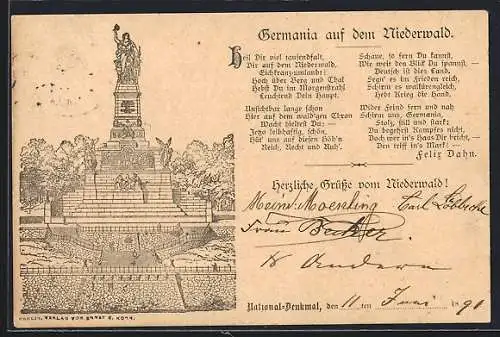 Germania auf dem Niederwald.
Heil Dir viel tausendfalt,
Dir auf dem Niederwald,
Eichkranz-umlaubt!
Hoch über Berg und Thal
Hebst Du im Morgenstrahl
Leuchtend Dein Haupt.
Unsichtbar lange schon
Hier auf dem wald'gen Thron
Wacht hieltest Du: —
Jetzo leibhaftig, schön,
Hüt' uns auf diesen Höh'n
Reich, Recht und Ruh'.
Schaue, so fern Du kannst,
Wie weit den Blick Du spannst, —
Deutsch ist dies Land.
Segn' es im Frieden reich,
Schirm es walkürengleich,
Hebt Krieg die Hand.
Wider Feind fern und nah
Schirm uns, Germania,
Stolz, süß und stark:
Du begehrst Kampfes nicht,
Doch wer in's Haus Dir bricht, —
Den triff in's Mark! —
Felix Dahn.
Herzliche Grüße vom Niederwald!
Carl
Frau Becker.
Andern
National-Denkmal, den 11 ten Juni 18 91
VERLAG VON ERNST C. KORN.